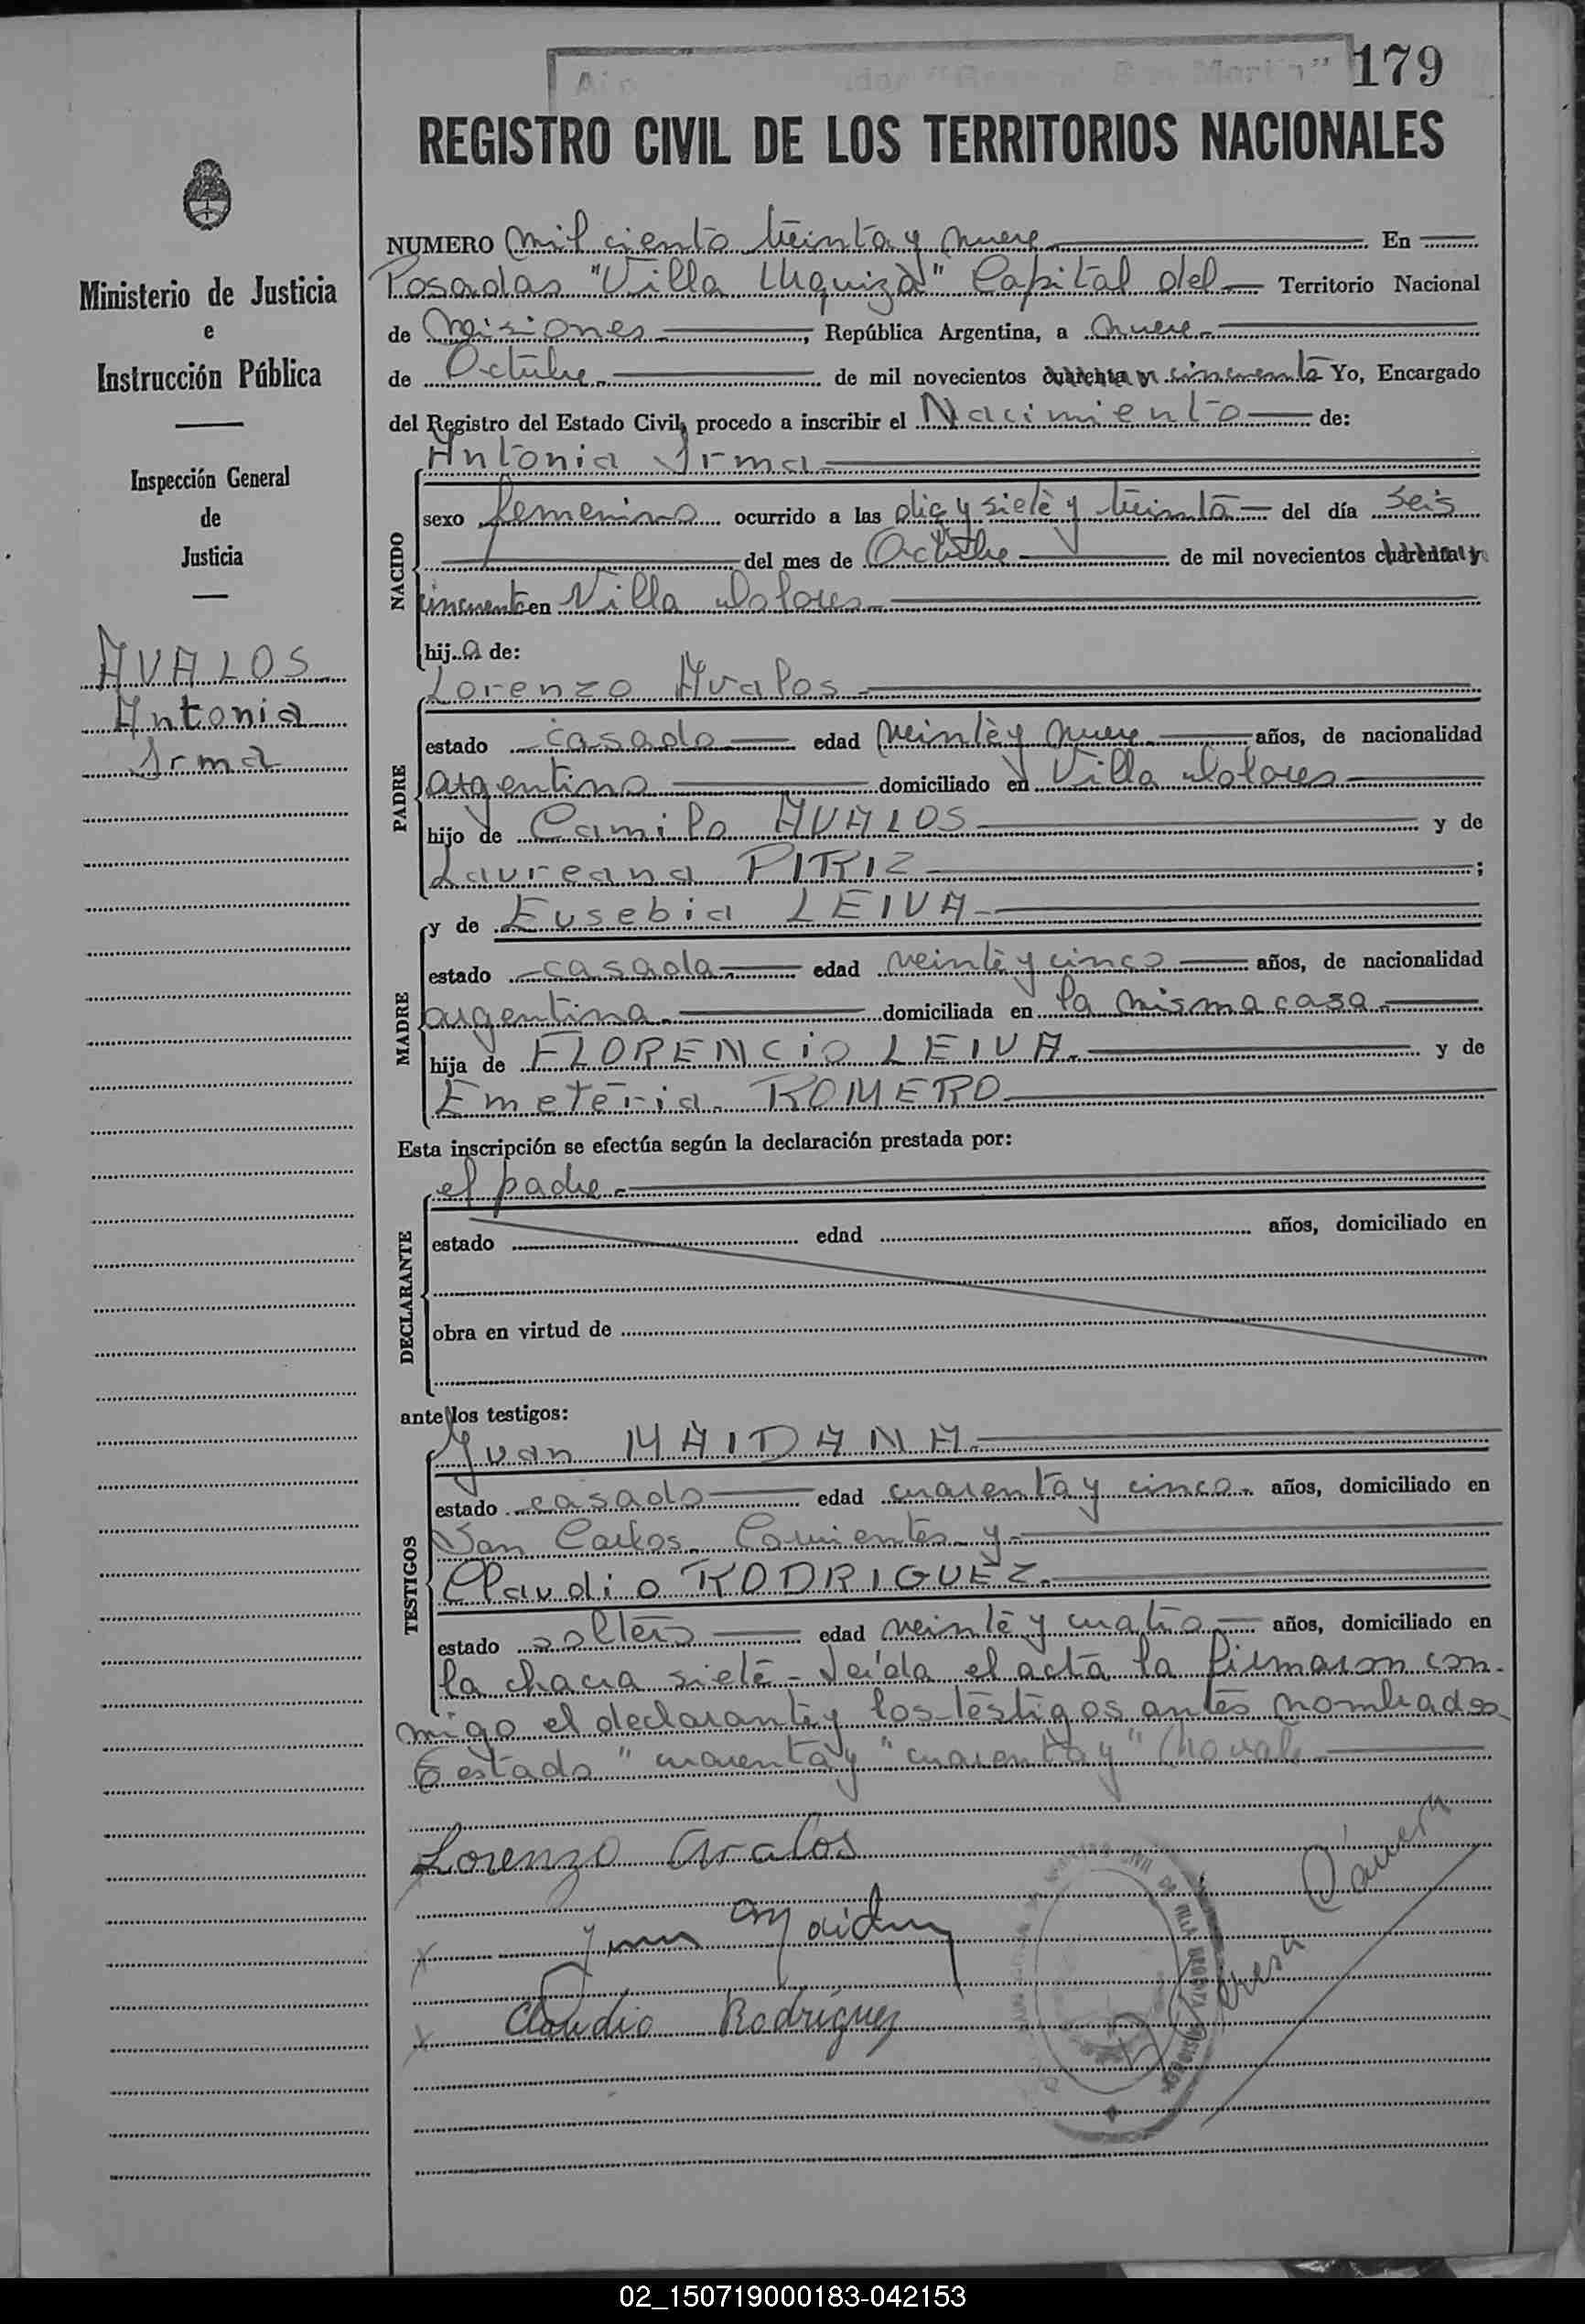 179
REGISTRO CIVIL DE LOS TERRITORIOS NACIONALES
Ministerio de Justicia
e
Instrucción Pública
Inspección General
de
Justicia
AVALOS
Antonia
Irma
NUMERO mil ciento treinta y nueve En
Posadas "Villa Urquiza" Capital del Territorio Nacional
de Misiones, República Argentina, a nueve
de Octubre de mil novecientos cuarenta y cincuenta Yo, Encargado
del Registro del Estado Civil, procedo a inscribir el Nacimiento de:
Antonia Irma
NACIDO
sexo femenino ocurrido a las diez y siete y treinta del día seis
del mes de Octubre de mil novecientos cuarenta y
cincuenta en Villa Dolores
hija de:
Lorenzo Avalos
PADRE
estado casado edad veinte y nueve años, de nacionalidad
argentino domiciliado en Villa Dolores
hijo de Camilo AVALOS y de
Laureana PIRIZ;
MADRE
y de Eusebia LEIVA
estado casada edad veinte y cinco años, de nacionalidad
argentina domiciliada en la misma casa
hija de FLORENCIO LEIVA y de
Emeteria ROMERO
Esta inscripción se efectúa según la declaración prestada por:
DECLARANTE
el padre
estado edad años, domiciliado en
obra en virtud de
ante los testigos:
TESTIGOS
Juan MAIDANA
estado casado edad cuarenta y cinco años, domiciliado en
San Carlos Corrientes y
Claudio RODRIGUEZ
estado soltero edad veinte y cuatro años, domiciliado en
la chacra siete - Leída el acta la firmaron con-
migo el declarante y los testigos antes nombrados
Testado "cuarenta y" "cuarenta y" No vale
Lorenzo Avalos
Juan Maidana
Claudio Rodríguez
02_150719000183-042153